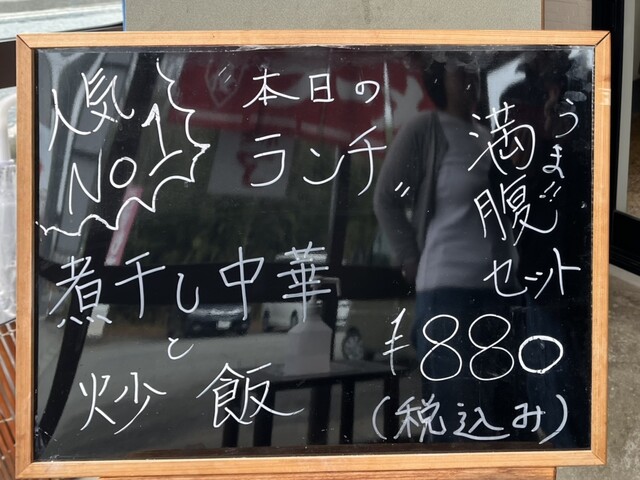 人気
NO1
"本日の
ランチ"
うま!!
満腹
セット
煮干し中華
と
炒飯
¥880
(税込み)